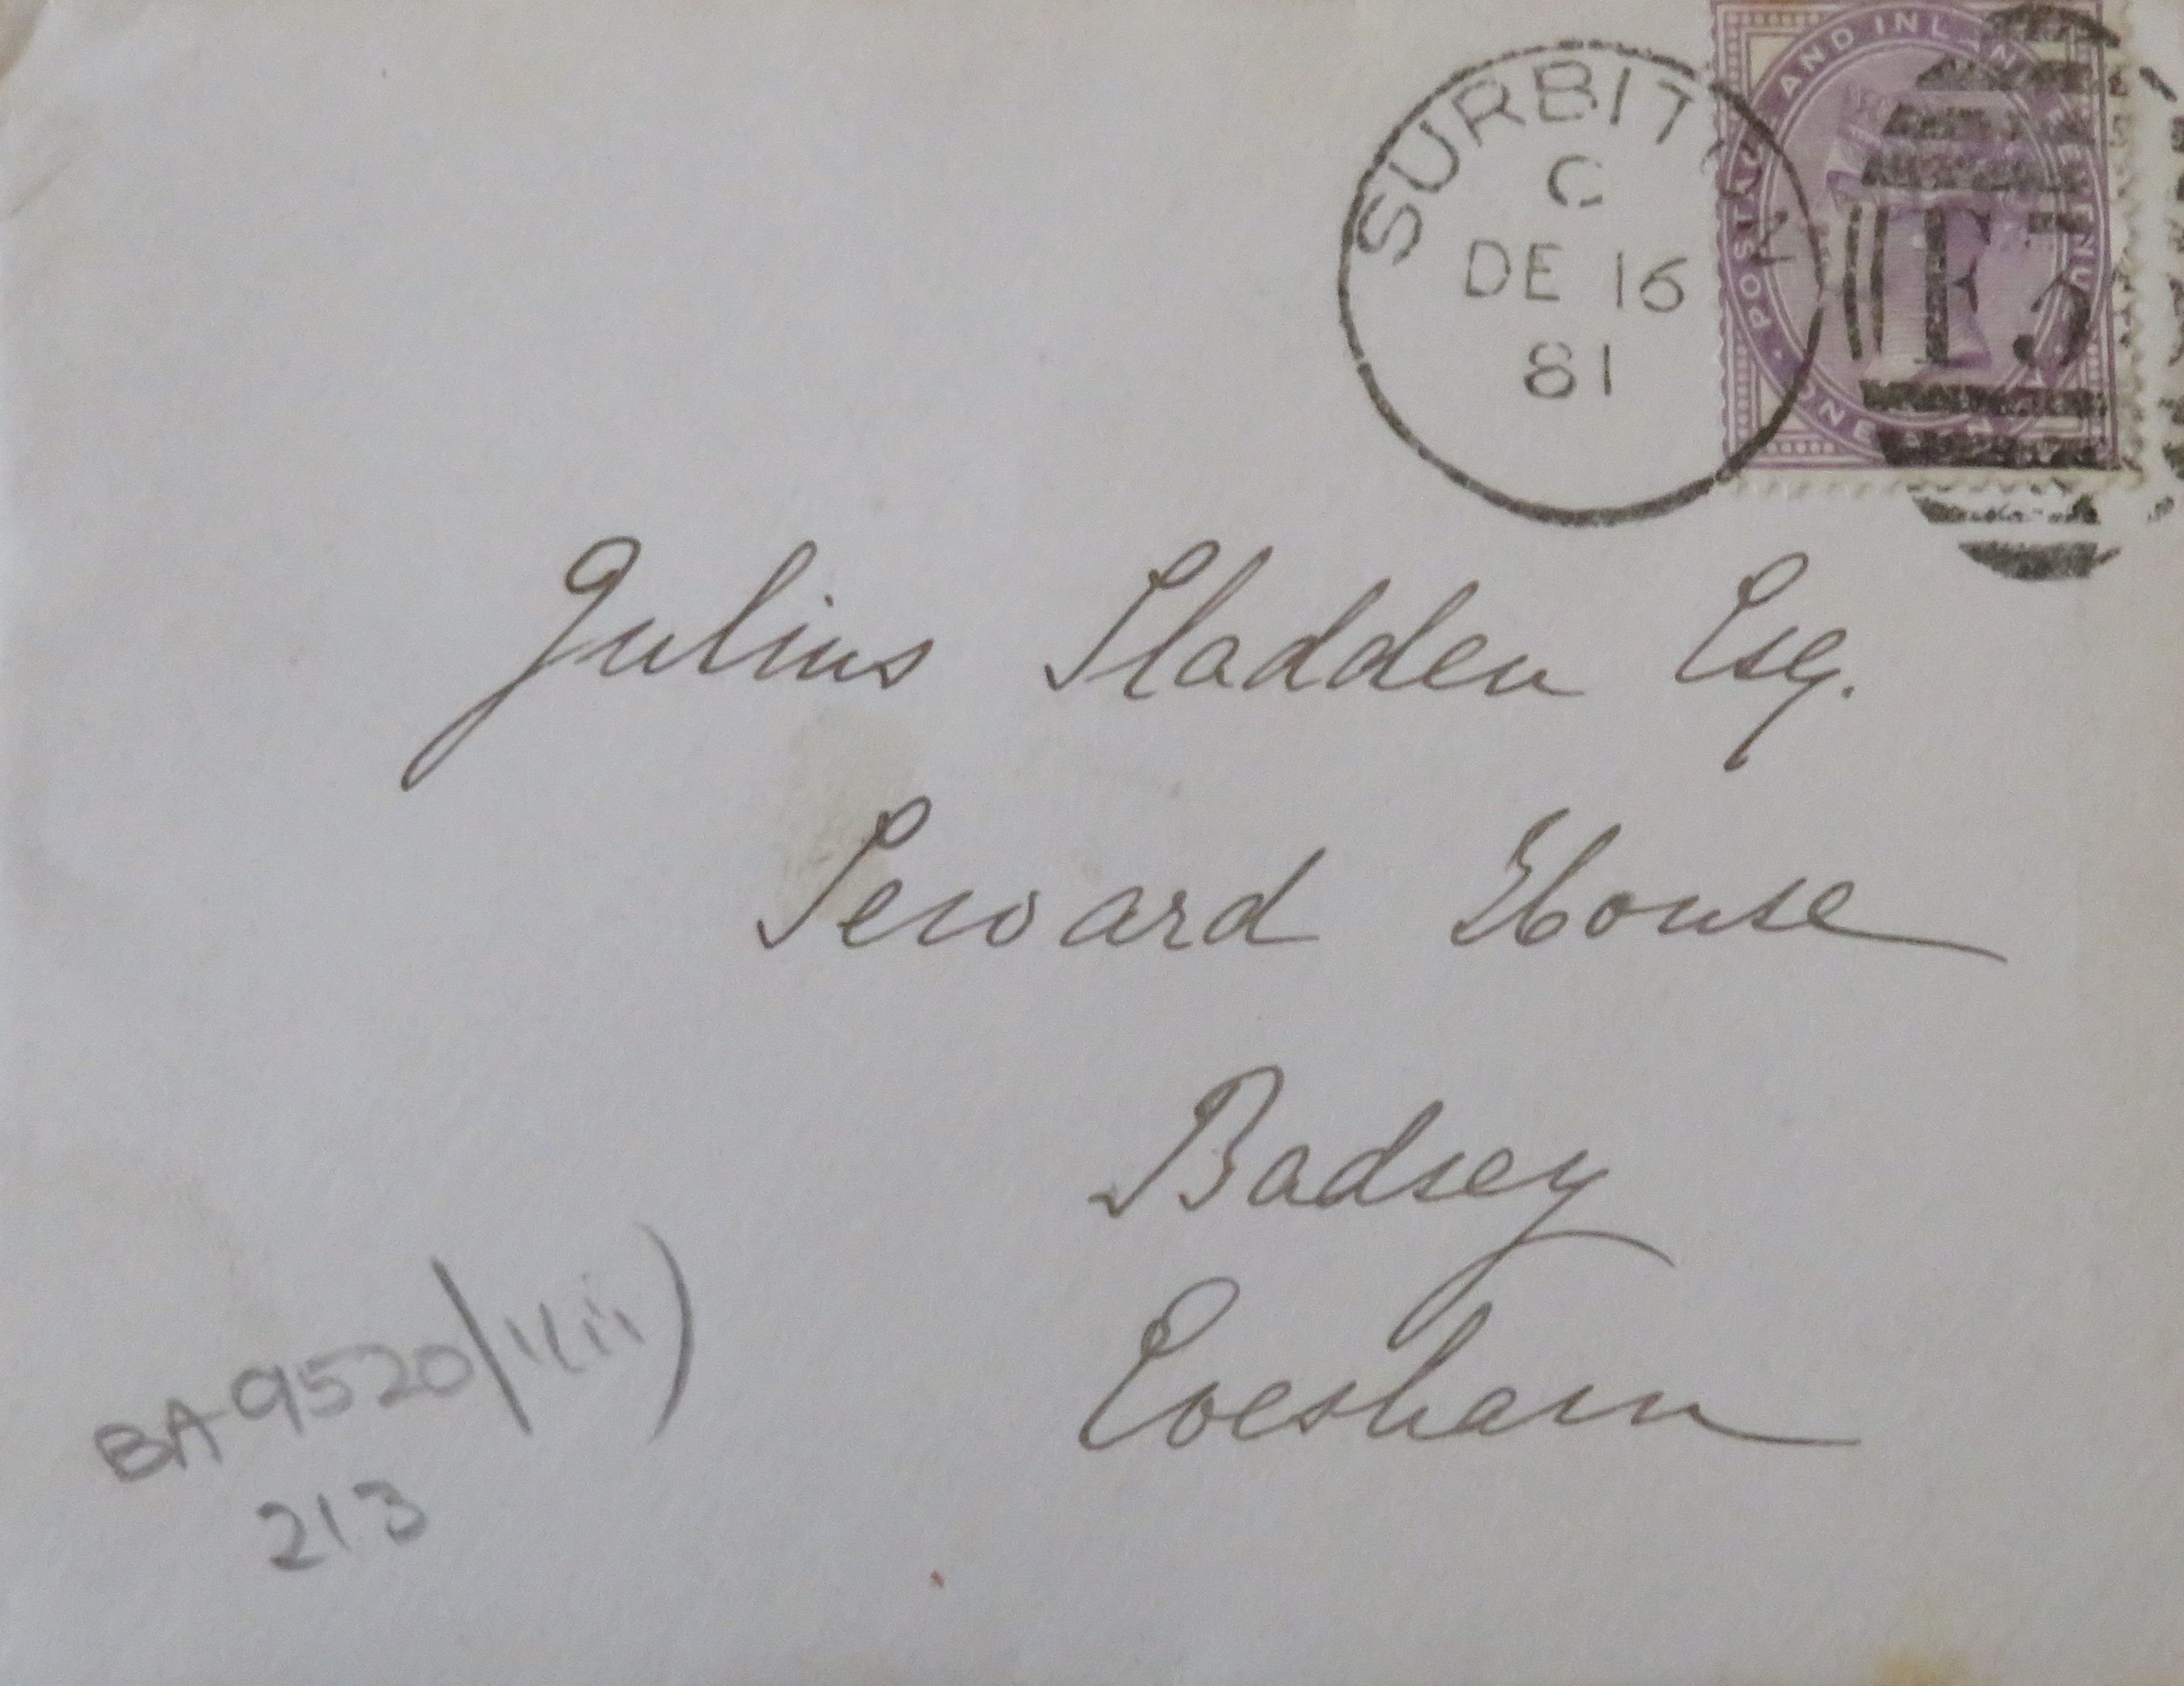 SURBITON
C
DE 16
81
POSTAGE AND INLAND REVENUE
ONE PENNY
Julius Sladden Esq.
Seward House
Badsey
Evesham
BA 9520
213